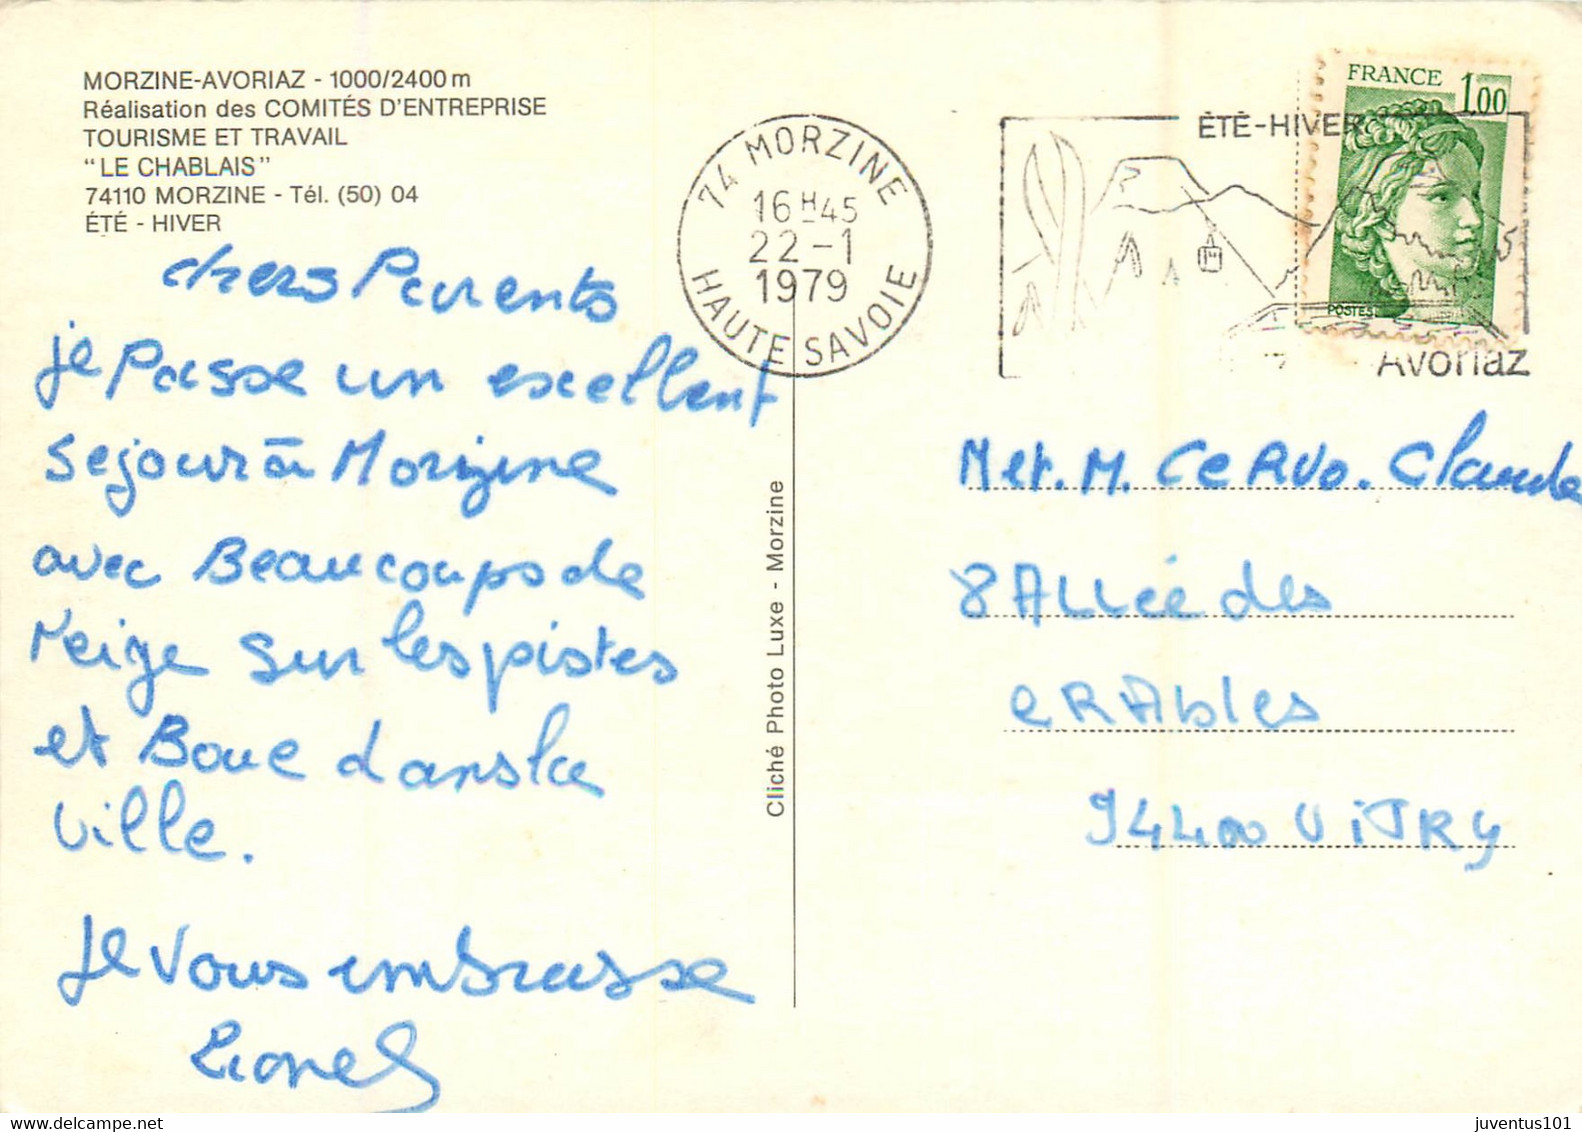 MORZINE-AVORIAZ - 1000/2400 m
Réalisation des COMITÉS D'ENTREPRISE
TOURISME ET TRAVAIL
"LE CHABLAIS"
74110 MORZINE - Tél. (50) 04
ÉTÉ - HIVER
chers Parents
je passe un excellent
sejour à Morizine
avec Beaucoups de
Neige sur les pistes
et Boue dans la
ville.
Je vous embrasse
Lionel
Cliché Photo Luxe - Morzine
74 MORZINE
16H45
22-1
1979
HAUTE SAVOIE
ÉTÉ-HIVER
Avoriaz
FRANCE 1,00
POSTES
M et. M. CeRVo. Claude
8 ALLée des
eRAbles
94400 ViTRy
juventus101